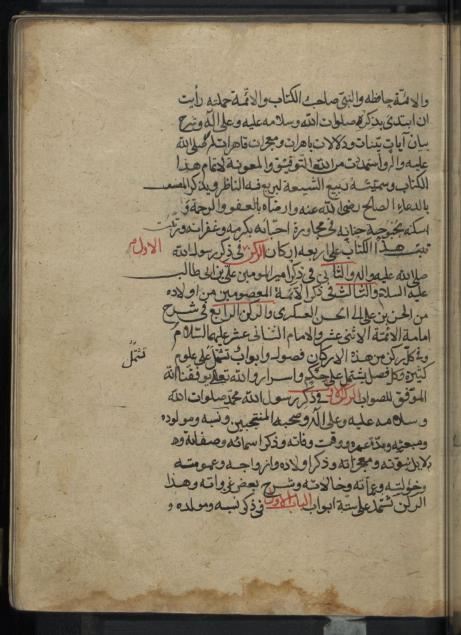 والائمة حافظه والنبى صاحب الكتاب والائمة حملته رأيت
ان ابتدى بذكره صلوات الله وسلامه عليه وعلى آله وشرح
بيان آيات بينات ودلالات باهرات ومعجزات قاهرات له صلى الله
عليه وآله واستمديت من الله التوفيق والمعونة لاتمام هذا
الكتاب وسميته ربيع الشيعة ليربع فيه الناظر ويذكر المصنف
بالدعاء الصالح رضى الله عنه وارضاه بالعفو والرحمة و
اسكنه بحبوحة جنانه فى مجاورة احبائه بكرمه وغفرانه
هذا الكتاب على اربعه اركان الركن الاول فى ذكر رسول الله
صلى الله عليه وآله والثانى فى ذكر امير المومنين على بن ابى طالب
عليه السلام والثالث فى ذكر الائمة المعصومين من اولاده
من الحسن بن على الى الحسن العسكرى والركن الرابع فى شرح
امامة الائمة الاثنى عشر والامام الثانى عشر عليهم السلام
وفى كل ركن من هذه الاركان فصول وابواب تشتمل على علوم
تشتمل
كثيرة وكل فصل يشتمل على حكم واسرار والله تعالى يوفقنا انه
الموفق للصواب الركن الاول فى ذكر رسول الله محمد صلوات الله
وسلامه عليه وعلى آله وصحبه المنتجبين ونسبه ومولده
ومبعثه ومدة عمره ووقت وفاته وذكر اسمائه وصفاته و
دلايل نبوته ومعجزاته وذكر اولاده وازواجه وعمومته
وخؤلته وعماته وخالاته وشرح بعض غزواته وهذا
الركن تشتمل على ستة ابواب الباب الاول فى ذكر نسبه ومولده و